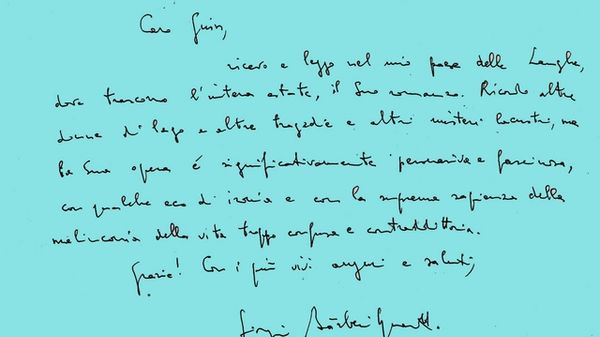 Caro Guin,
ricevo e leggo nel mio paese delle Langhe,
dove trascorro l'intera estate, il Suo romanzo. Ricordo altre
donne di lago e altre tragedie e altri misteri lacustri, ma
la Sua opera è significativamente persuasiva e fascinosa,
con qualche eco di ironia e con la suprema sapienza della
malinconia della vita troppo confusa e contraddittoria.
Grazie! Con i più vivi auguri e saluti,
Giorgio Bàrberi Squarotti.